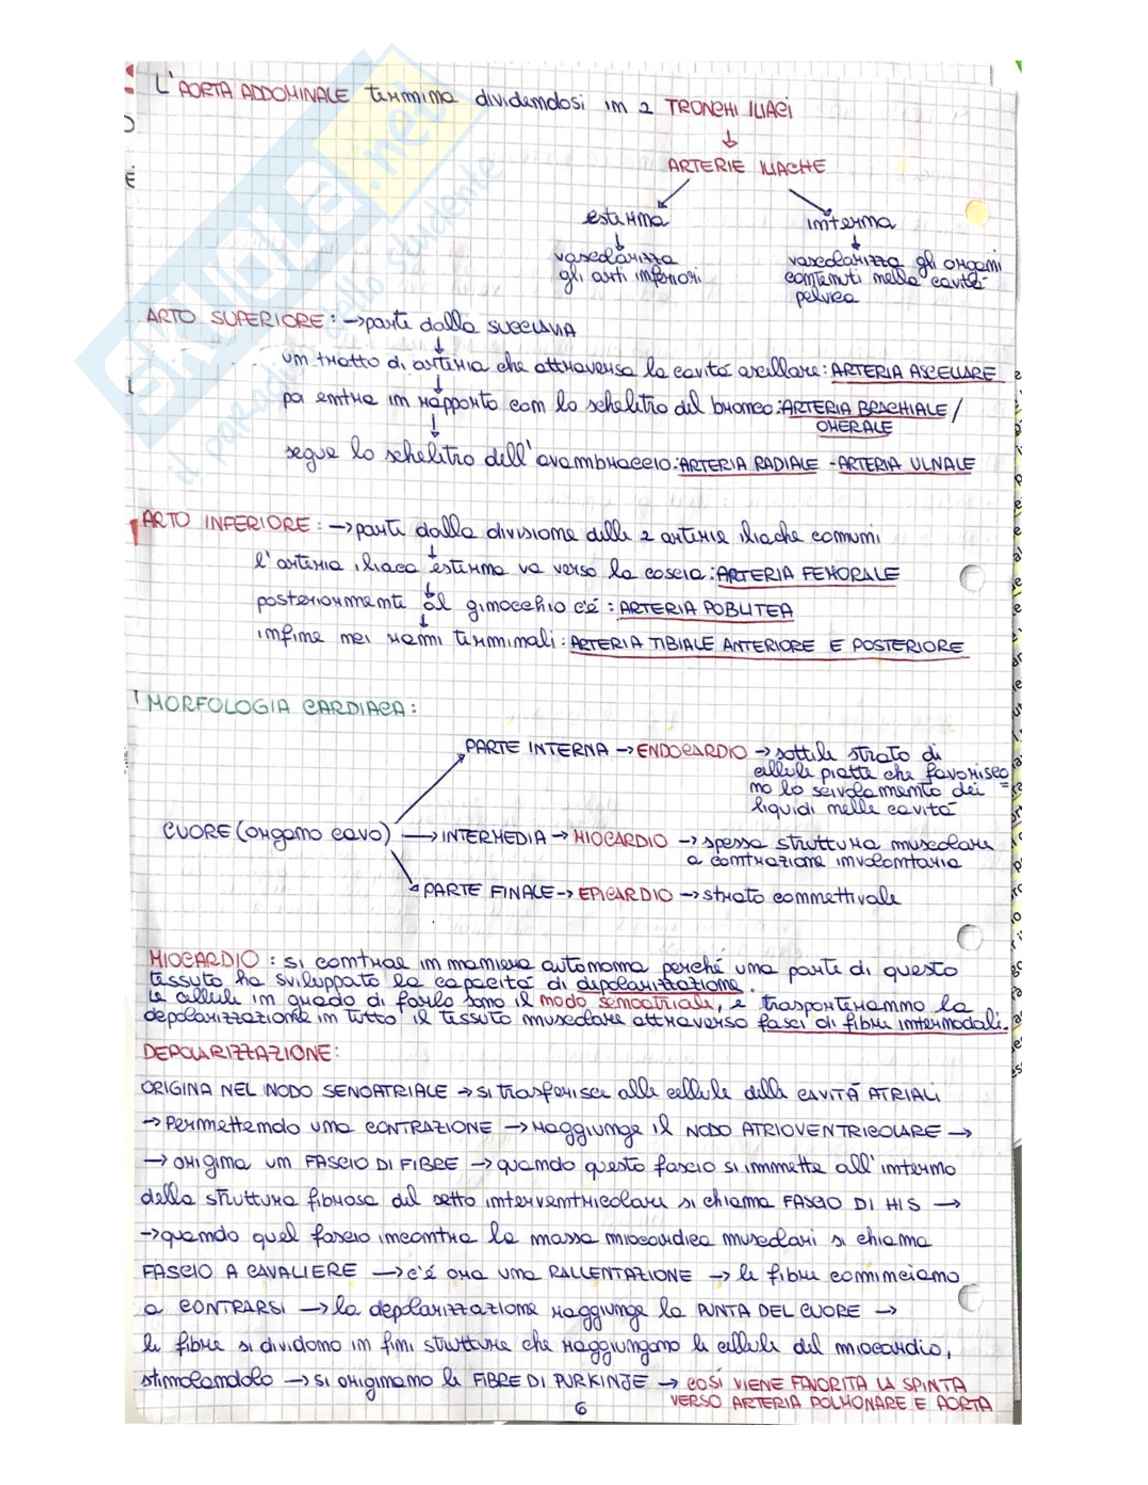 L'AORTA ADDOMINALE termina dividendosi in 2 TRONCHI ILIACI
ARTERIE ILIACHE
esterna
interna
vascolarizza
gli arti inferiori
vascolarizza gli organi
contenuti nella cavità
pelvica
ARTO SUPERIORE: →parte dalla SUCCLAVIA
un tratto di arteria che attraversa la cavità ascellare: ARTERIA ASCELLARE
poi entra in rapporto con lo scheletro del bronco: ARTERIA BRACHIALE/
OMERALE
segue lo scheletro dell'avambraccio: ARTERIA RADIALE - ARTERIA ULNALE
ARTO INFERIORE: →parte dalla divisione delle 2 arterie iliache comuni
l'arteria iliaca esterna va verso la coscia: ARTERIA FEMORALE
posteriormente al ginocchio c'é: ARTERIA POBLITEA
infine nei rami terminali: ARTERIA TIBIALE ANTERIORE E POSTERIORE
MORFOLOGIA CARDIACA:
PARTE INTERNA → ENDOCARDIO → sottile strato di
cellule piatte che favorisco
no lo scivolamento dei
liquidi nelle cavità
CUORE (organo cavo) → INTERMEDIA → MIOCARDIO → spessa struttura muscolare
a contrazione involontaria
PARTE FINALE → EPICARDIO → strato connettivale
MIOCARDIO: si contrae in maniera autonoma perché una parte di questo
tessuto ha sviluppato la capacità di depolarizzazione.
le cellule in grado di farlo sono il nodo senoatriale, e trasporteranno la
depolarizzazione in tutto il tessuto muscolare attraverso fasci di fibre internodali.
DEPOLARIZZAZIONE:
ORIGINA NEL NODO SENOATRIALE → si trasferisce alle cellule delle CAVITÀ ATRIALI
→ Permettendo una CONTRAZIONE → raggiunge il NODO ATRIOVENTRICOLARE →
→ origina un FASCIO DI FIBRE → quando questo fascio si immette all'interno
della struttura fibrosa del setto interventricolare si chiama FASCIO DI HIS →
→ quando quel fascio incontra la massa miocardica muscolari si chiama
FASCIO A CAVALIERE → c'é ora una RALLENTAZIONE → le fibre cominciano
a CONTRARSI → la depolarizzazione raggiunge la PUNTA DEL CUORE →
le fibre si dividono in fini strutture che raggiungono le cellule del miocardio,
stimolandolo → si originano le FIBRE DI PURKINJE → COSÍ VIENE FAVORITA LA SPINTA
VERSO ARTERIA POLMONARE E AORTA
6
SKUOLA.net
il paradiso dello studente